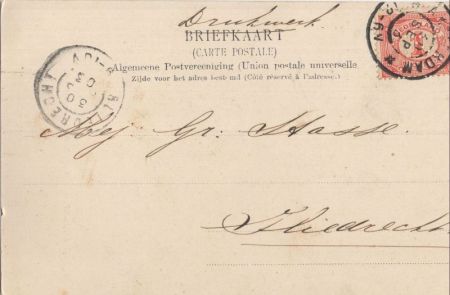 Drukwerk.
BRIEFKAART
(CARTE POSTALE)
Algemeene Postvereeniging (Union postale universelle
Zijde voor het adres bestemd (Côté réservé à l'adresse.)
SLIEDRECHT
Mej Gr: Stasse.
Sliedrecht